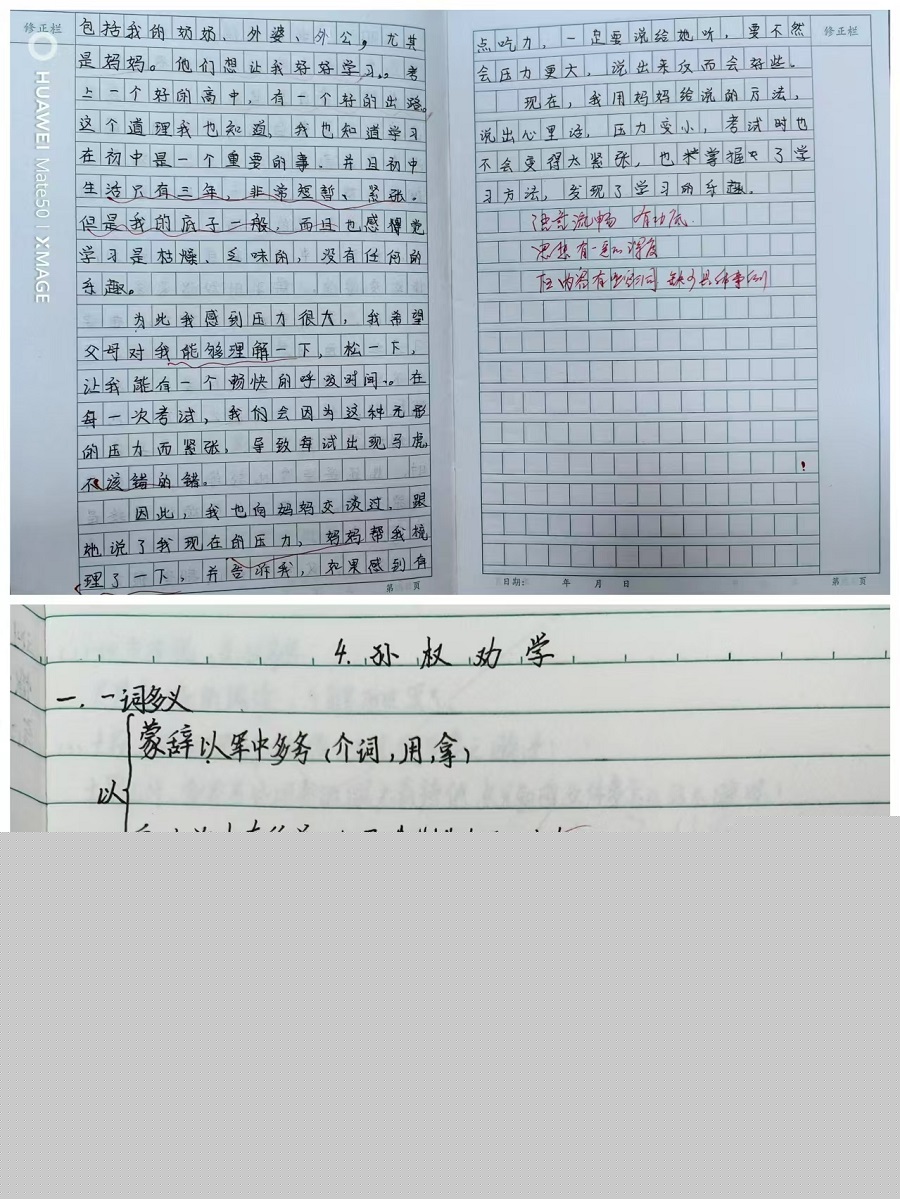 修正栏
HUAWEI Mate50 | XMAGE
包括我的奶奶、外婆、外公，尤其
是妈妈。他们想让我好好学习。考
上一个好的高中，有一个好的出路。
这个道理我也知道，我也知道学习
在初中是一个重要的事，并且初中
生活只有三年，非常短暂、紧张。
但是我的底子一般，而且也感觉
学习是枯燥、乏味的，没有任何的
乐趣。
为此我感到压力很大，我希望
父母对我能够理解一下，松一下，
让我能有一个畅快的呼吸时间。在
每一次考试，我们会因为这种无形
的压力而紧张，导致每试出现马虎
不该错的错。
因此，我也向妈妈交谈过，跟
她说了我现在的压力，妈妈帮我梳
理了一下，并告诉我，如果感到有
第 页
修正栏
点吃力，一定要说给她听，要不然
会压力更大，说出来反而会好些。
现在，我用妈妈给说的方法，
说出心里话，压力变小，考试时也
不会变得太紧张，也掌握了学
习方法，发现了学习的乐趣。
语言流畅 有功底
思想有一定深度
内容有些 缺少具体事例
日期： 年 月 日
第 页
4.孙权劝学
一.一词多义
以
蒙辞以军中多务(介词,用,拿)